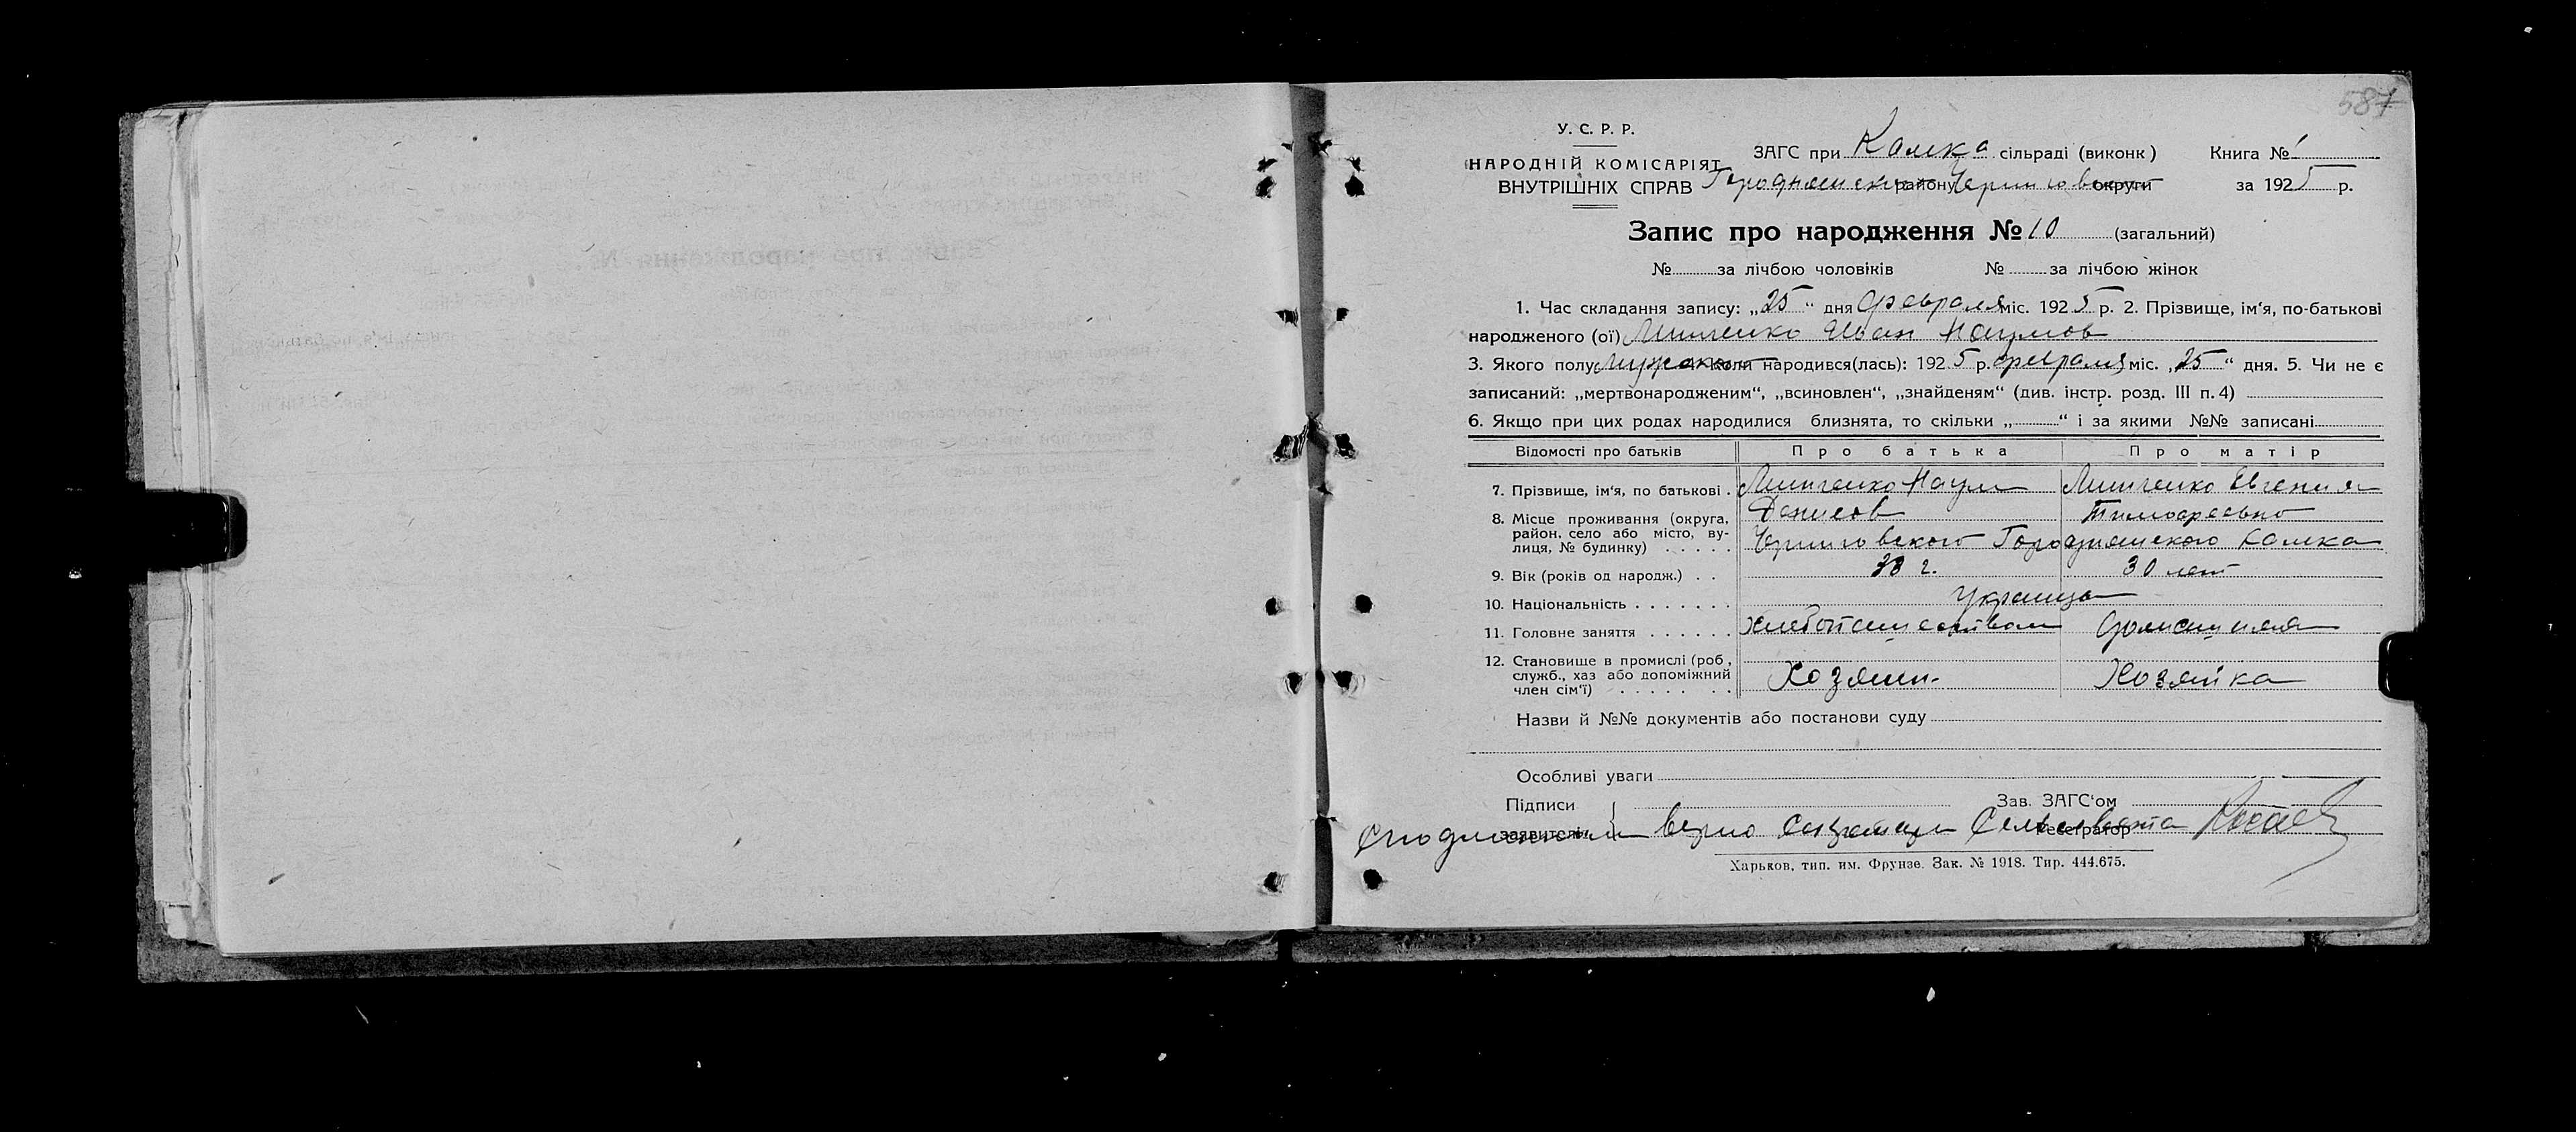 587
У. С. Р. Р.
НАРОДНІЙ КОМІСАРІЯТ
ВНУТРІШНІХ СПРАВ
ЗАГС при Камка сільраді (виконк) Книга № 1
Городнянского району Черниговской округи за 1925 р.
Запис про народження № 10 (загальний)
№ за лічбою чоловіків № за лічбою жінок
1. Час складання запису: „25“ дня февраля міс. 1925 р. 2. Прізвище, ім‘я, по-батькові
народженого (ої) Иван Наумов
3. Якого полу мужского Коли народився(лась): 1925 р. февраля міс. „25“ дня. 5. Чи не є
записаний: „мертвонародженим“, „всиновлен“, „знайденям“ (див. інстр. розд. III п. 4)
6. Якщо при цих родах народилися близнята, то скільки „ “ і за якими №№ записані
Відомості про батьків Про батька Про матір
7. Прізвище, ім‘я, по батькові . Наум Евгения
Денисов Тимофеевно
8. Місце проживання (округа, район, село або місто, ву-
лиця, № будинку) . . . . . Черниговского Городнянского Камка
9. Вік (років од народж.) . . 38 г. 30 лет
10. Національність . . . . . . . Украинцы
11. Головне заняття . . . . . . Хлебопашеством домашняя
12. Становище в промислі (роб., служб., хаз або допоміжний
член сім‘ї) . . . . . . . Хозяин Хозяйка
Назви й №№ документів або постанови суду
Особливі уваги
Підписи Зав. ЗАГС‘ом
заявителів Реєстратор
С подлинным верно Секретарь Сельсовета
Харьков, тип. им. Фрунзе. Зак. № 1918. Тир. 444.675.